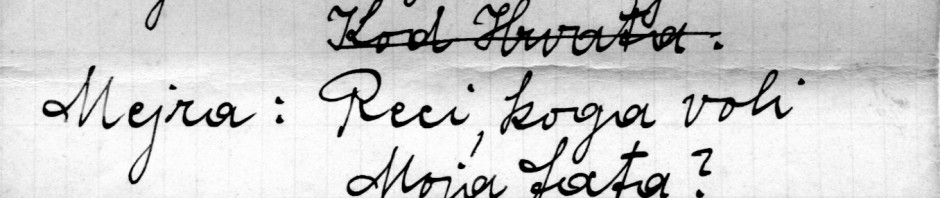 Kod Hrvata.
Mejra: Reci, koga voli
Moja Fata?